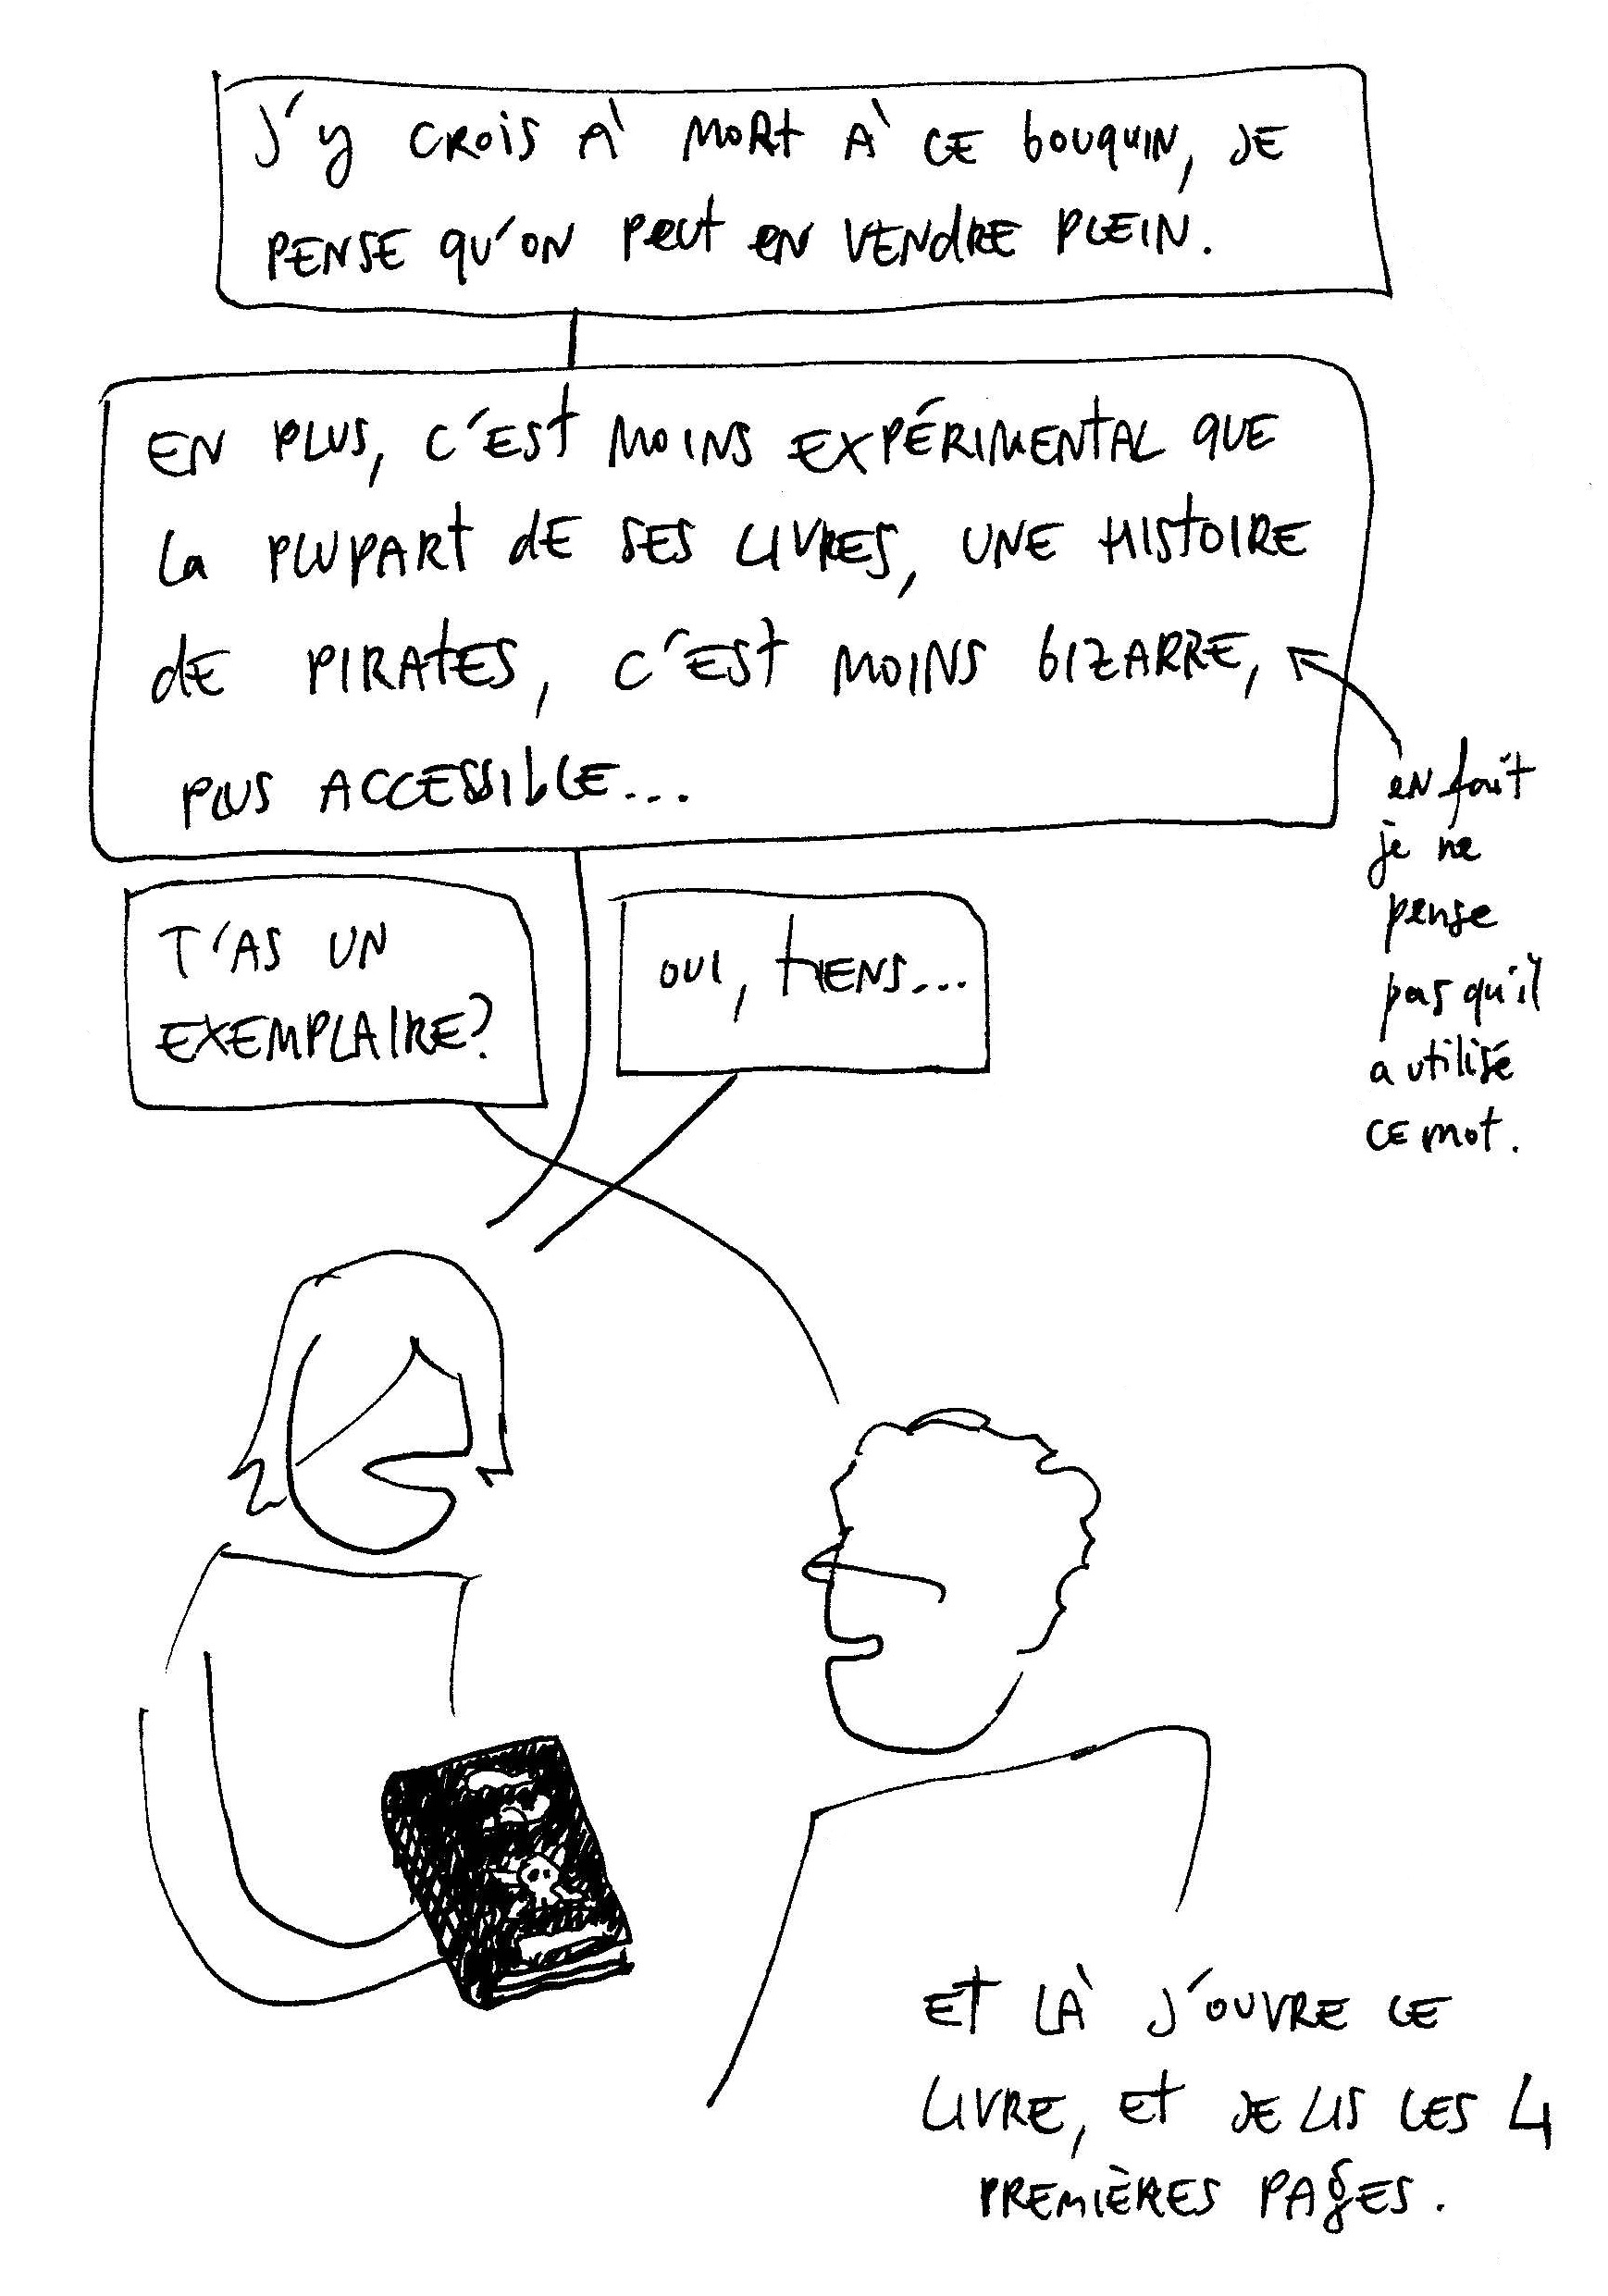 J'y CROIS À MORT À CE BOUQUIN, JE
PENSE QU'ON PEUT EN VENDRE PLEIN.
EN PLUS, C'EST MOINS EXPÉRIMENTAL QUE
LA PLUPART DE SES LIVRES, UNE HISTOIRE
DE PIRATES, C'EST MOINS BIZARRE,
PLUS ACCESSIBLE...
en fait
je ne
pense
pas qu'il
a utilisé
ce mot.
T'AS UN
EXEMPLAIRE?
OUI, TIENS...
ET LÀ J'OUVRE CE
LIVRE, ET JE LIS LES 4
PREMIÈRES PAGES.